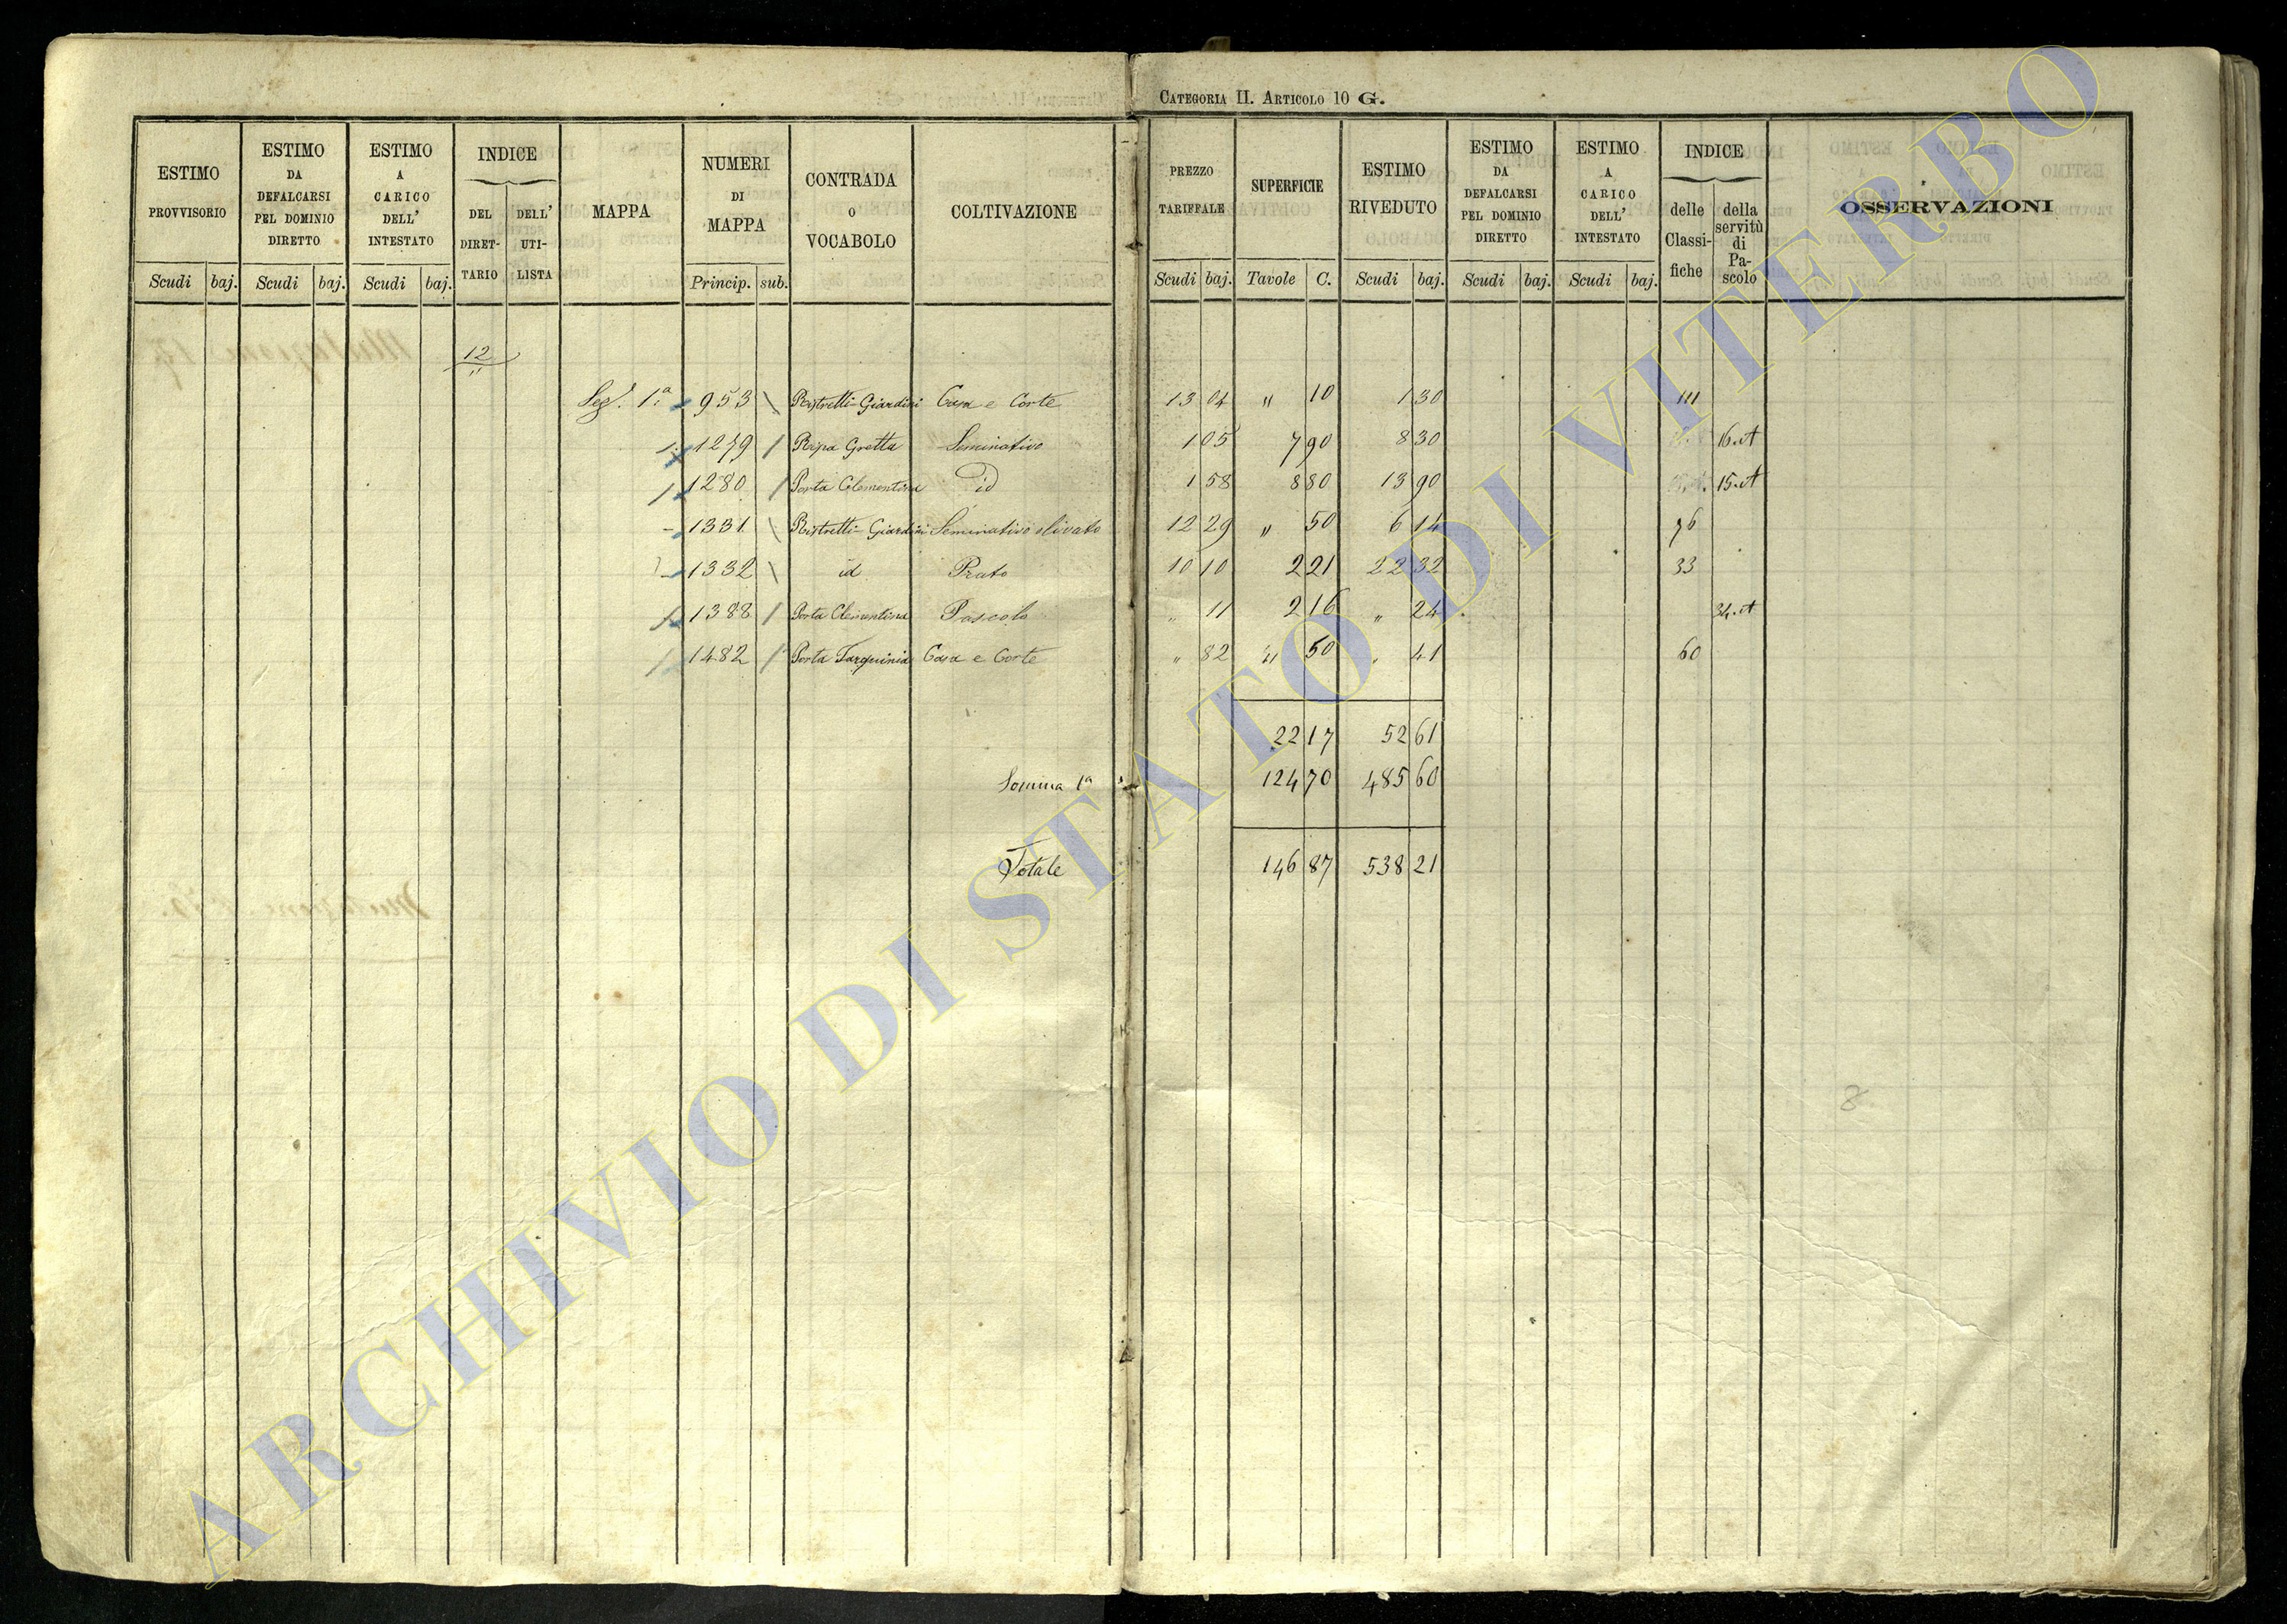 CATEGORIA II. ARTICOLO 10 G.
ESTIMO PROVVISORIO Scudi baj.
ESTIMO DA DEFALCARSI PEL DOMINIO DIRETTO Scudi baj.
ESTIMO A CARICO DELL' INTESTATO Scudi baj.
INDICE DEL DIRET-TARIO DELL' UTI-LISTA
MAPPA
NUMERI DI MAPPA Princip. sub.
CONTRADA O VOCABOLO
COLTIVAZIONE
PREZZO TARIFFALE Scudi baj.
SUPERFICIE Tavole C.
ESTIMO RIVEDUTO Scudi baj.
ESTIMO DA DEFALCARSI PEL DOMINIO DIRETTO Scudi baj.
ESTIMO A CARICO DELL' INTESTATO Scudi baj.
INDICE delle Classi-fiche della servitù di Pa-scolo
OSSERVAZIONI
12
Seg. 1ª 953 Ristretti-Giardini Casa e Corte 13 04 " 10 1 30
1279 Ripa Gretta Seminativo 1 05 7 90 8 30 16.A
1280 Porta Clementina id 1 58 8 80 13 90 15.A
1331 Ristretti-Giardini Seminativo olivato 12 29 " 50 6 14 76
1332 id Prato 10 10 2 21 22 32 33
1388 Porta Clementina Pascolo " 11 2 16 " 24 34.A
1482 Porta Tarquinia Casa e Corte " 82 " 50 " 41 60
22 17 52 61
Somma 1ª 124 70 485 60
Totale 146 87 538 21
8
ARCHIVIO DI STATO DI VITERBO